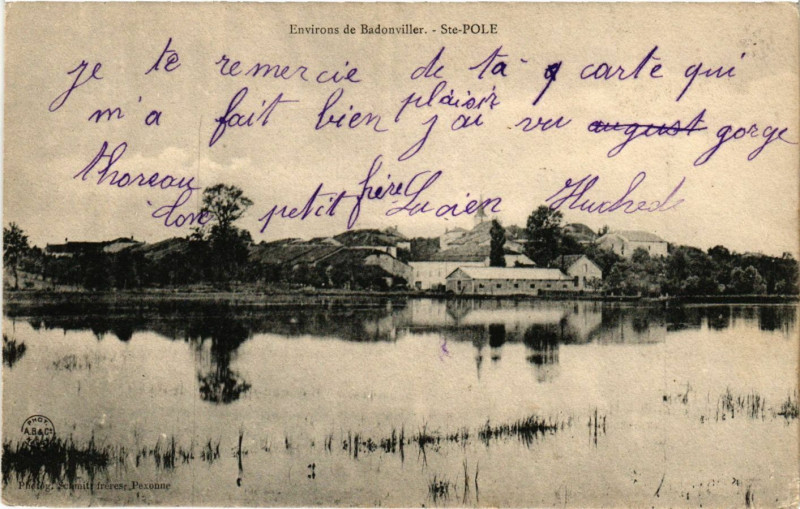 Environs de Badonviller. - Ste-POLE
je te remercie de ta carte qui
m'a fait bien plaisir j'ai vu august gorge
thoreau
ton petit frère Lucien
PHOT.
A.B&Cie
Photog. Schmitt frères, Pexonne